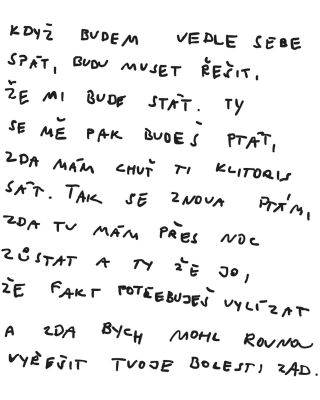 KDYŽ BUDEM VEDLE SEBE
SPÁT, BUDU MUSET ŘEŠIT,
ŽE MI BUDE STÁT. TY
SE MĚ PAK BUDEŠ PTÁT,
ZDA MÁM CHUŤ TI KLITORIS
SÁT. TAK SE ZNOVA PTÁM,
ZDA TU MÁM PŘES NOC
ZŮSTAT A TY ŽE JO,
ŽE FAKT POTŘEBUJEŠ VYLÍZAT
A ZDA BYCH MOHL ROVNOU
VYŘEŠIT TVOJE BOLESTI ZAD.